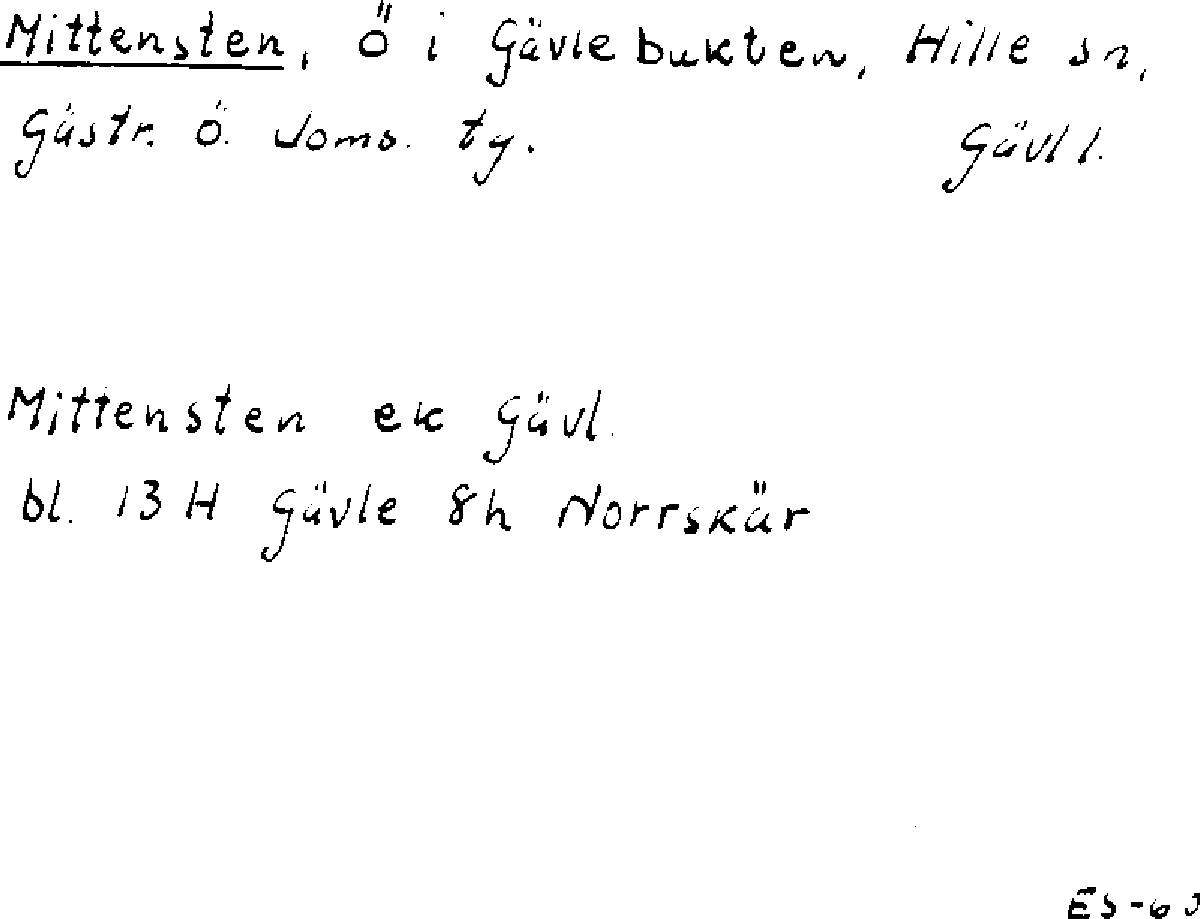 Mittensten, ö i Gävlebukten, Hille sn,
Gästr. ö. doms. tg. Gävl l.
Mittensten ek Gävl.
bl. 13 H Gävle 8h Norrskär